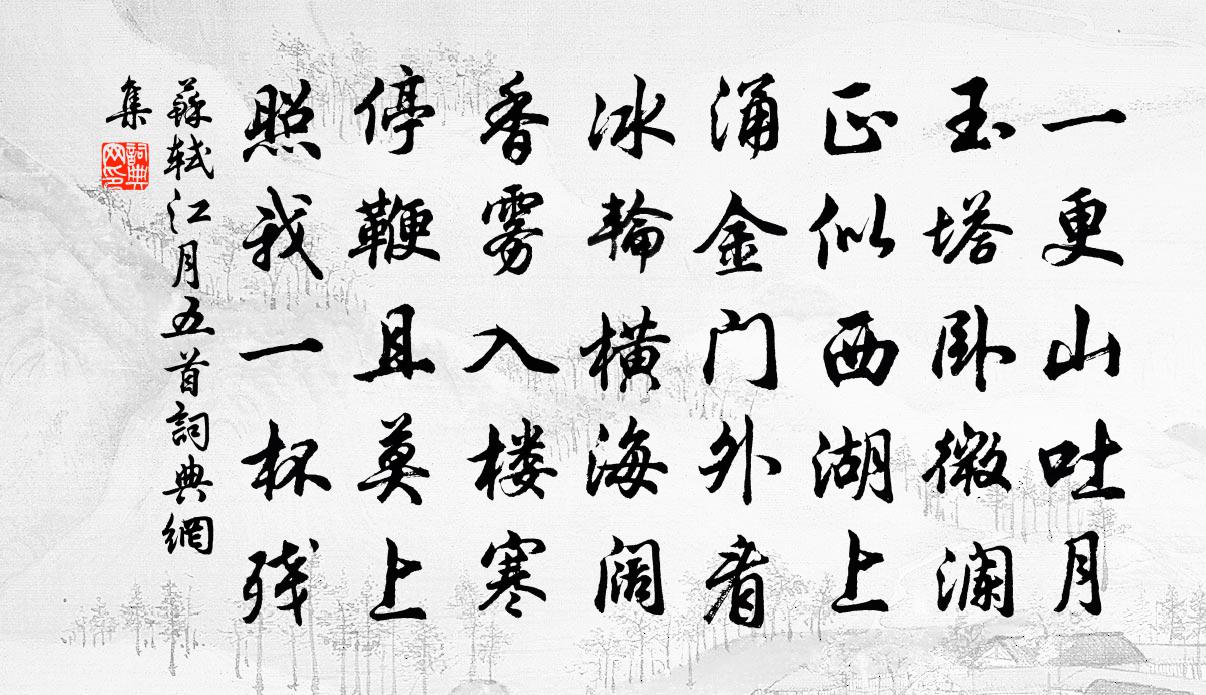 一更山吐月
玉塔卧微澜
正似西湖上
涌金门外看
冰輪橫海阔
香雾入楼寒
停鞭且莫上
照我一杯残
蘇轼江月五首詞典網
集
詞典
网印